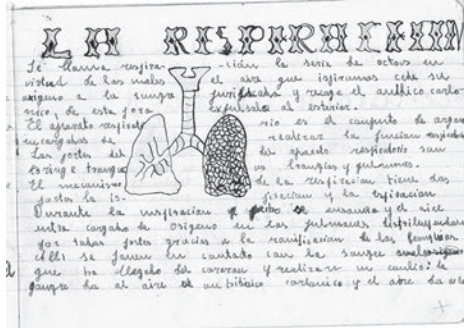 LA RESPIRACION
Se llama respira- -ción la serie de actos en
virtud de los cuales el aire que ispiramos cede su
oxigeno a la sangre y recoge el carlo-
nico, de esta expulsado al esterior.
El aparato respirato rio es el conjunto de organ
encargados de realizar la funcion respirato
Las partes del aparato respiratorio son
laringe traquea os bronquios y pulmones.
El mecanismo de la respiracion tiene dos
partes la is- piracion y la espiracion
Durante la inspiracion el pecho se ensancha y el aire
entra cargado de oxigeno en los pulmones
por todas partes gracias a la ramificacion de los bronquios
alli se ponen en contacto con la sangre
que ha llegado del corazon y realizan un canbio: la
sangre da al aire el carbonico y el aire da a la